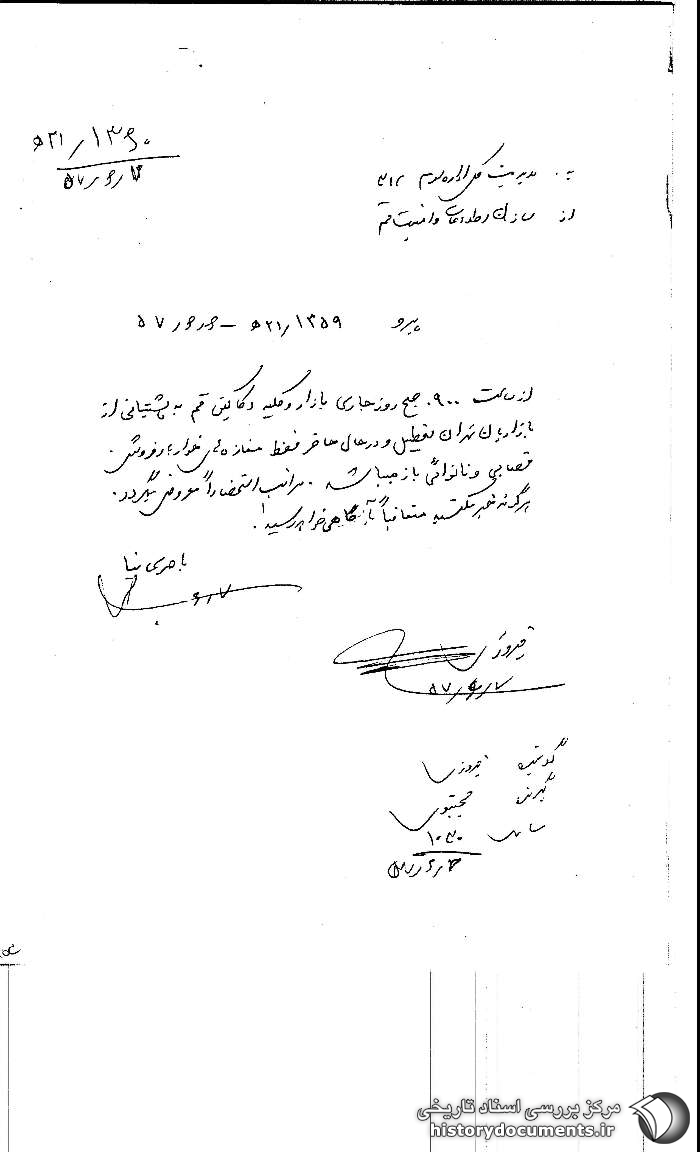 ۱۳۶۰/ ۲۱ه
۵۷/۶/۷
به : مدیریت کل اداره سوم ۳۱۲
از سازمان اطلاعات و امنیت قم
پیرو ۱۳۵۹/ ۲۱ه – ۵۷/۶/۶
از ساعت ۹۰۰. صبح روز جاری بازار و کلیه دکاکین قم به پشتیبانی از
بازاریان تهران تعطیل و در حال حاضر فقط مغازه های خواربارفروشی .
قصابی و نانوائی باز میباشد . مراتب استحضاراً معروض میگردد .
هرگونه خبر مکتسبه متعاقباً بآگاهی خواهد رسید .
۷/۶
۵۷/۶/۷
گوینده
گیرنده
ساعت ۱۰۳۰
مرکز بررسی اسناد تاریخی
historydocuments.ir